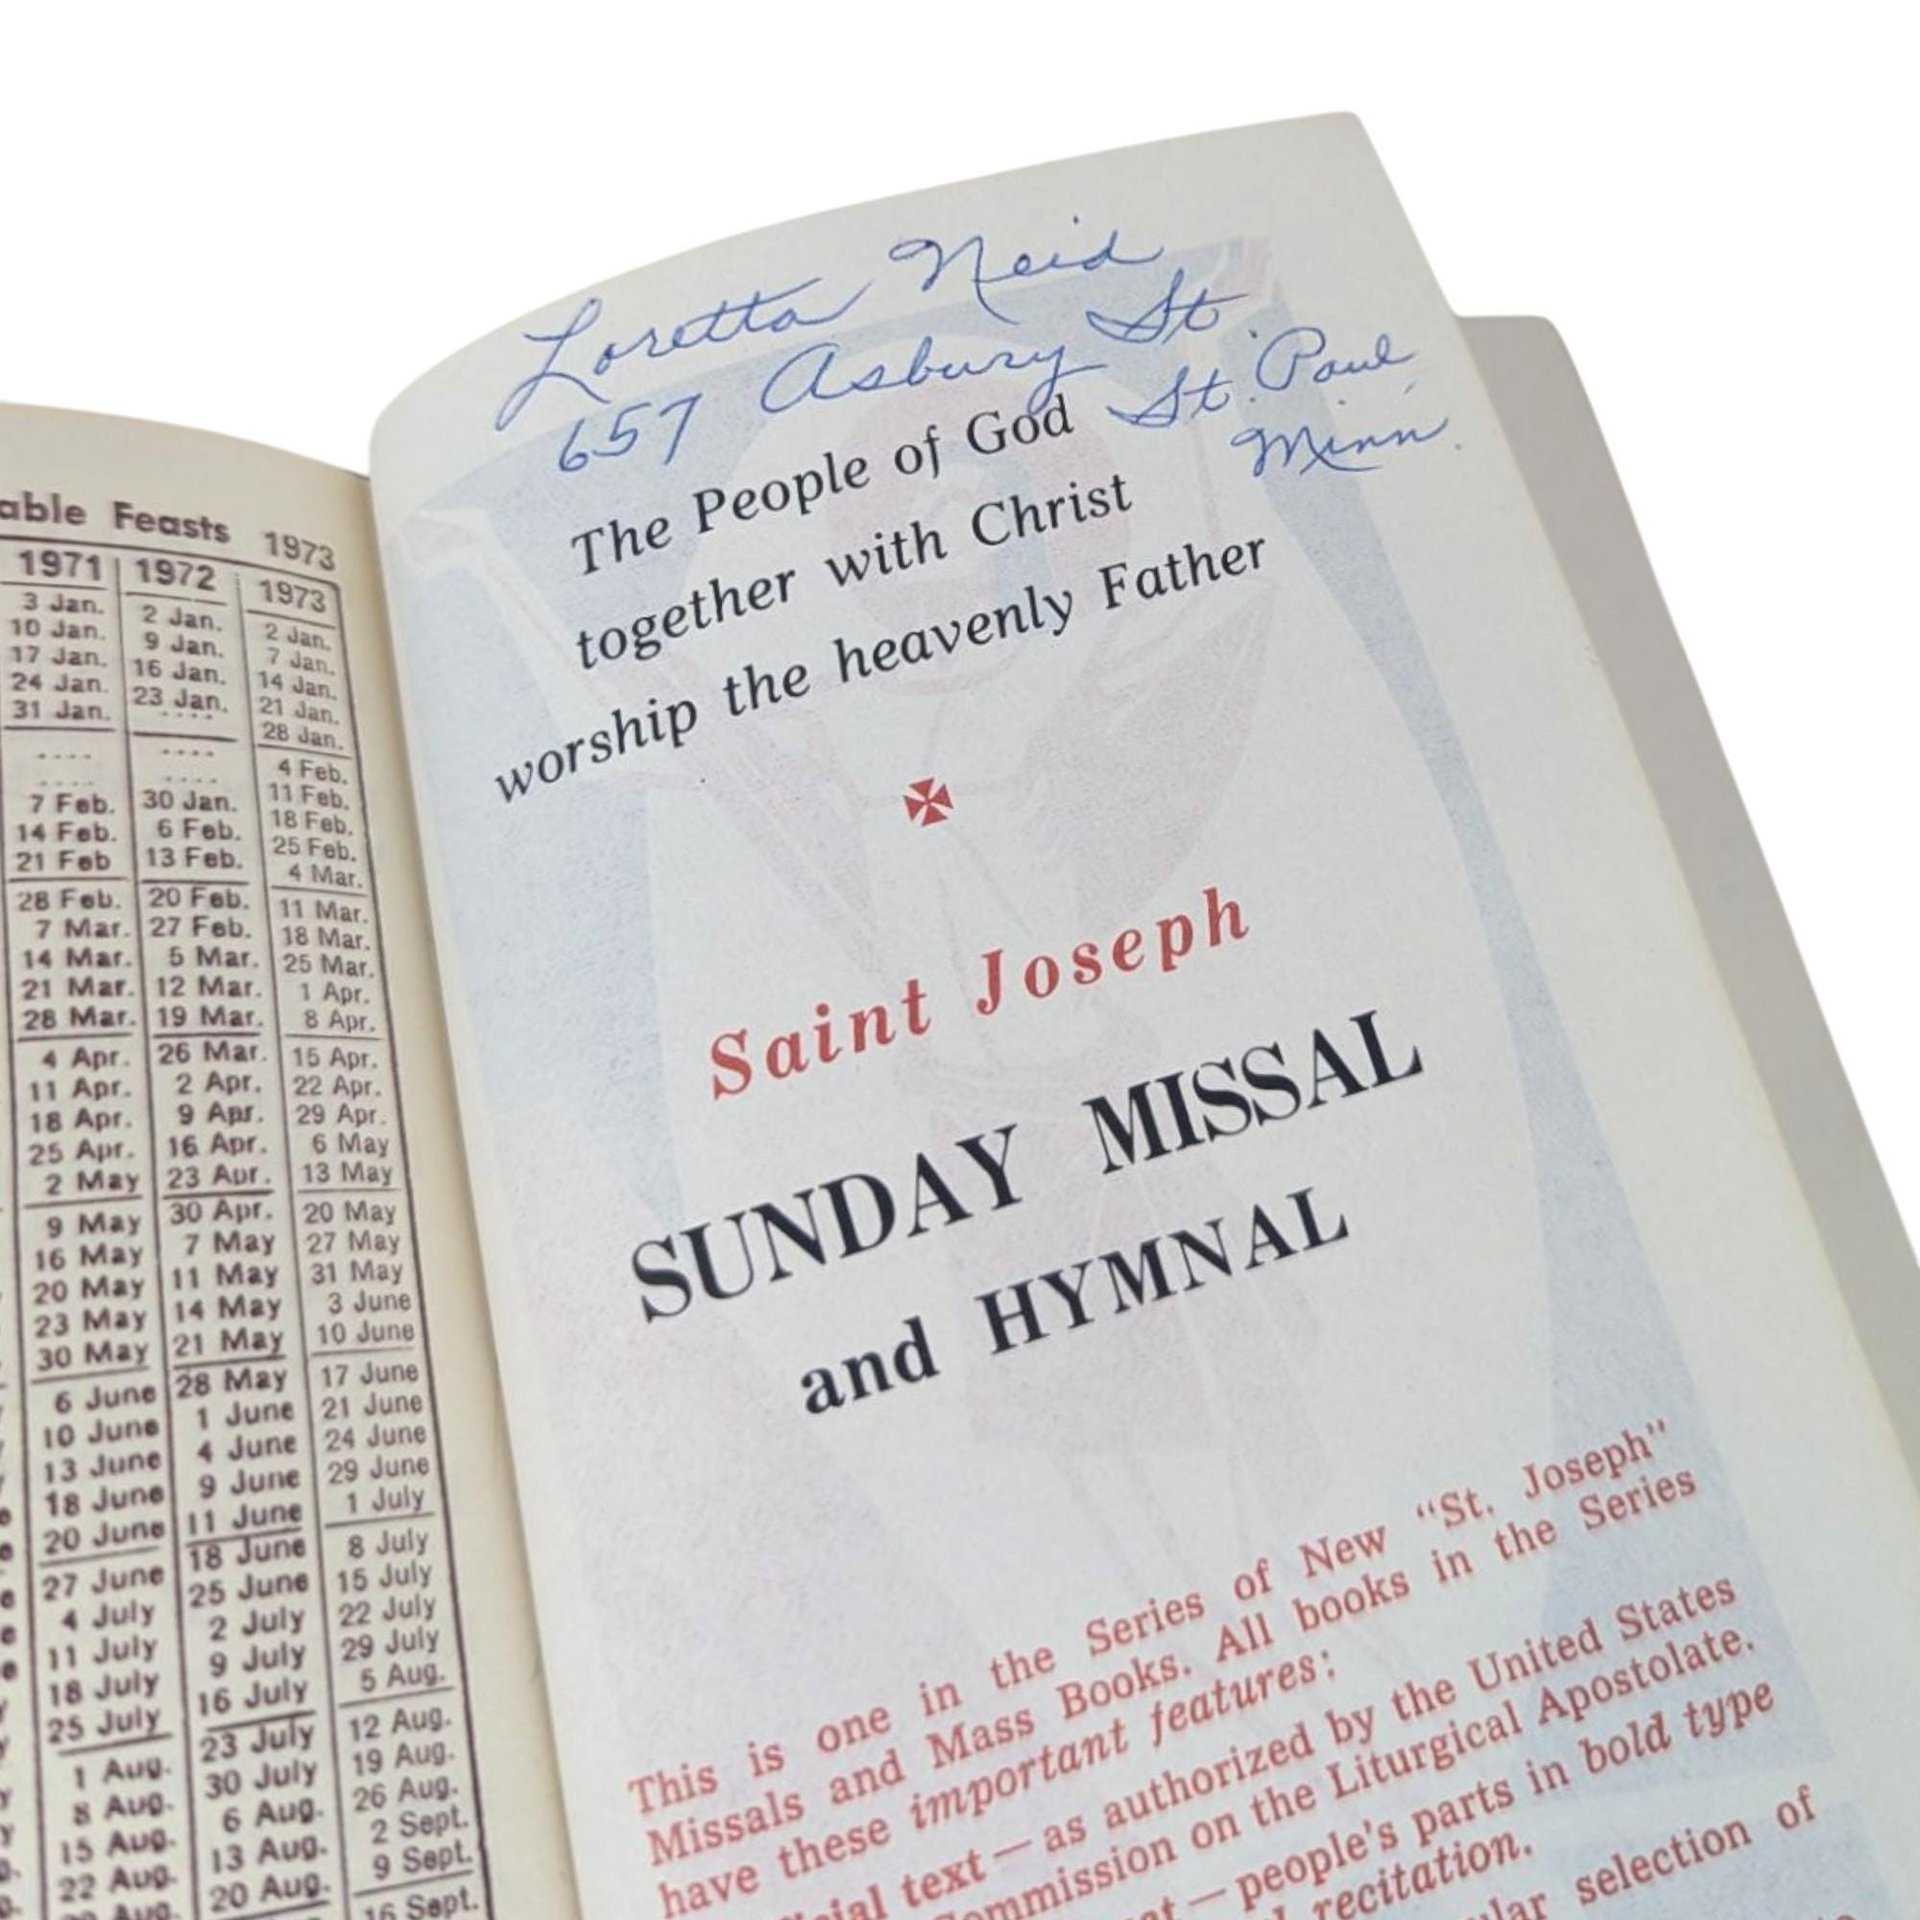 able Feasts 1973
1971 1972 1973
3 Jan. 2 Jan. 2 Jan.
10 Jan. 9 Jan. 7 Jan.
17 Jan. 16 Jan. 14 Jan.
24 Jan. 23 Jan. 21 Jan.
31 Jan. .... 28 Jan.
.... .... 4 Feb.
.... .... 11 Feb.
7 Feb. 30 Jan. 18 Feb.
14 Feb. 6 Feb. 25 Feb.
21 Feb 13 Feb. 4 Mar.
28 Feb. 20 Feb. 11 Mar.
7 Mar. 27 Feb. 18 Mar.
14 Mar. 5 Mar. 25 Mar.
21 Mar. 12 Mar. 1 Apr.
28 Mar. 19 Mar. 8 Apr.
4 Apr. 26 Mar. 15 Apr.
11 Apr. 2 Apr. 22 Apr.
18 Apr. 9 Apr. 29 Apr.
25 Apr. 16 Apr. 6 May
2 May 23 Apr. 13 May
9 May 30 Apr. 20 May
16 May 7 May 27 May
20 May 11 May 31 May
23 May 14 May 3 June
30 May 21 May 10 June
6 June 28 May 17 June
10 June 1 June 21 June
13 June 4 June 24 June
18 June 9 June 29 June
20 June 11 June 1 July
27 June 18 June 8 July
4 July 25 June 15 July
11 July 2 July 22 July
18 July 9 July 29 July
25 July 16 July 5 Aug.
1 Aug. 23 July 12 Aug.
8 Aug. 30 July 19 Aug.
15 Aug. 6 Aug. 26 Aug.
22 Aug. 13 Aug. 2 Sept.
29 Aug. 20 Aug. 9 Sept.
16 Sept.
Loretta Neid
657 Asbury St.
St. Paul,
Minn.
The People of God
together with Christ
worship the heavenly Father
Saint Joseph
SUNDAY MISSAL
and HYMNAL
This is one in the Series of New "St. Joseph"
Missals and Mass Books. All books in the Series
have these important features:
cial text — as authorized by the United States
ommission on the Liturgical Apostolate.
— people's parts in bold type
recitation.
lar selection of